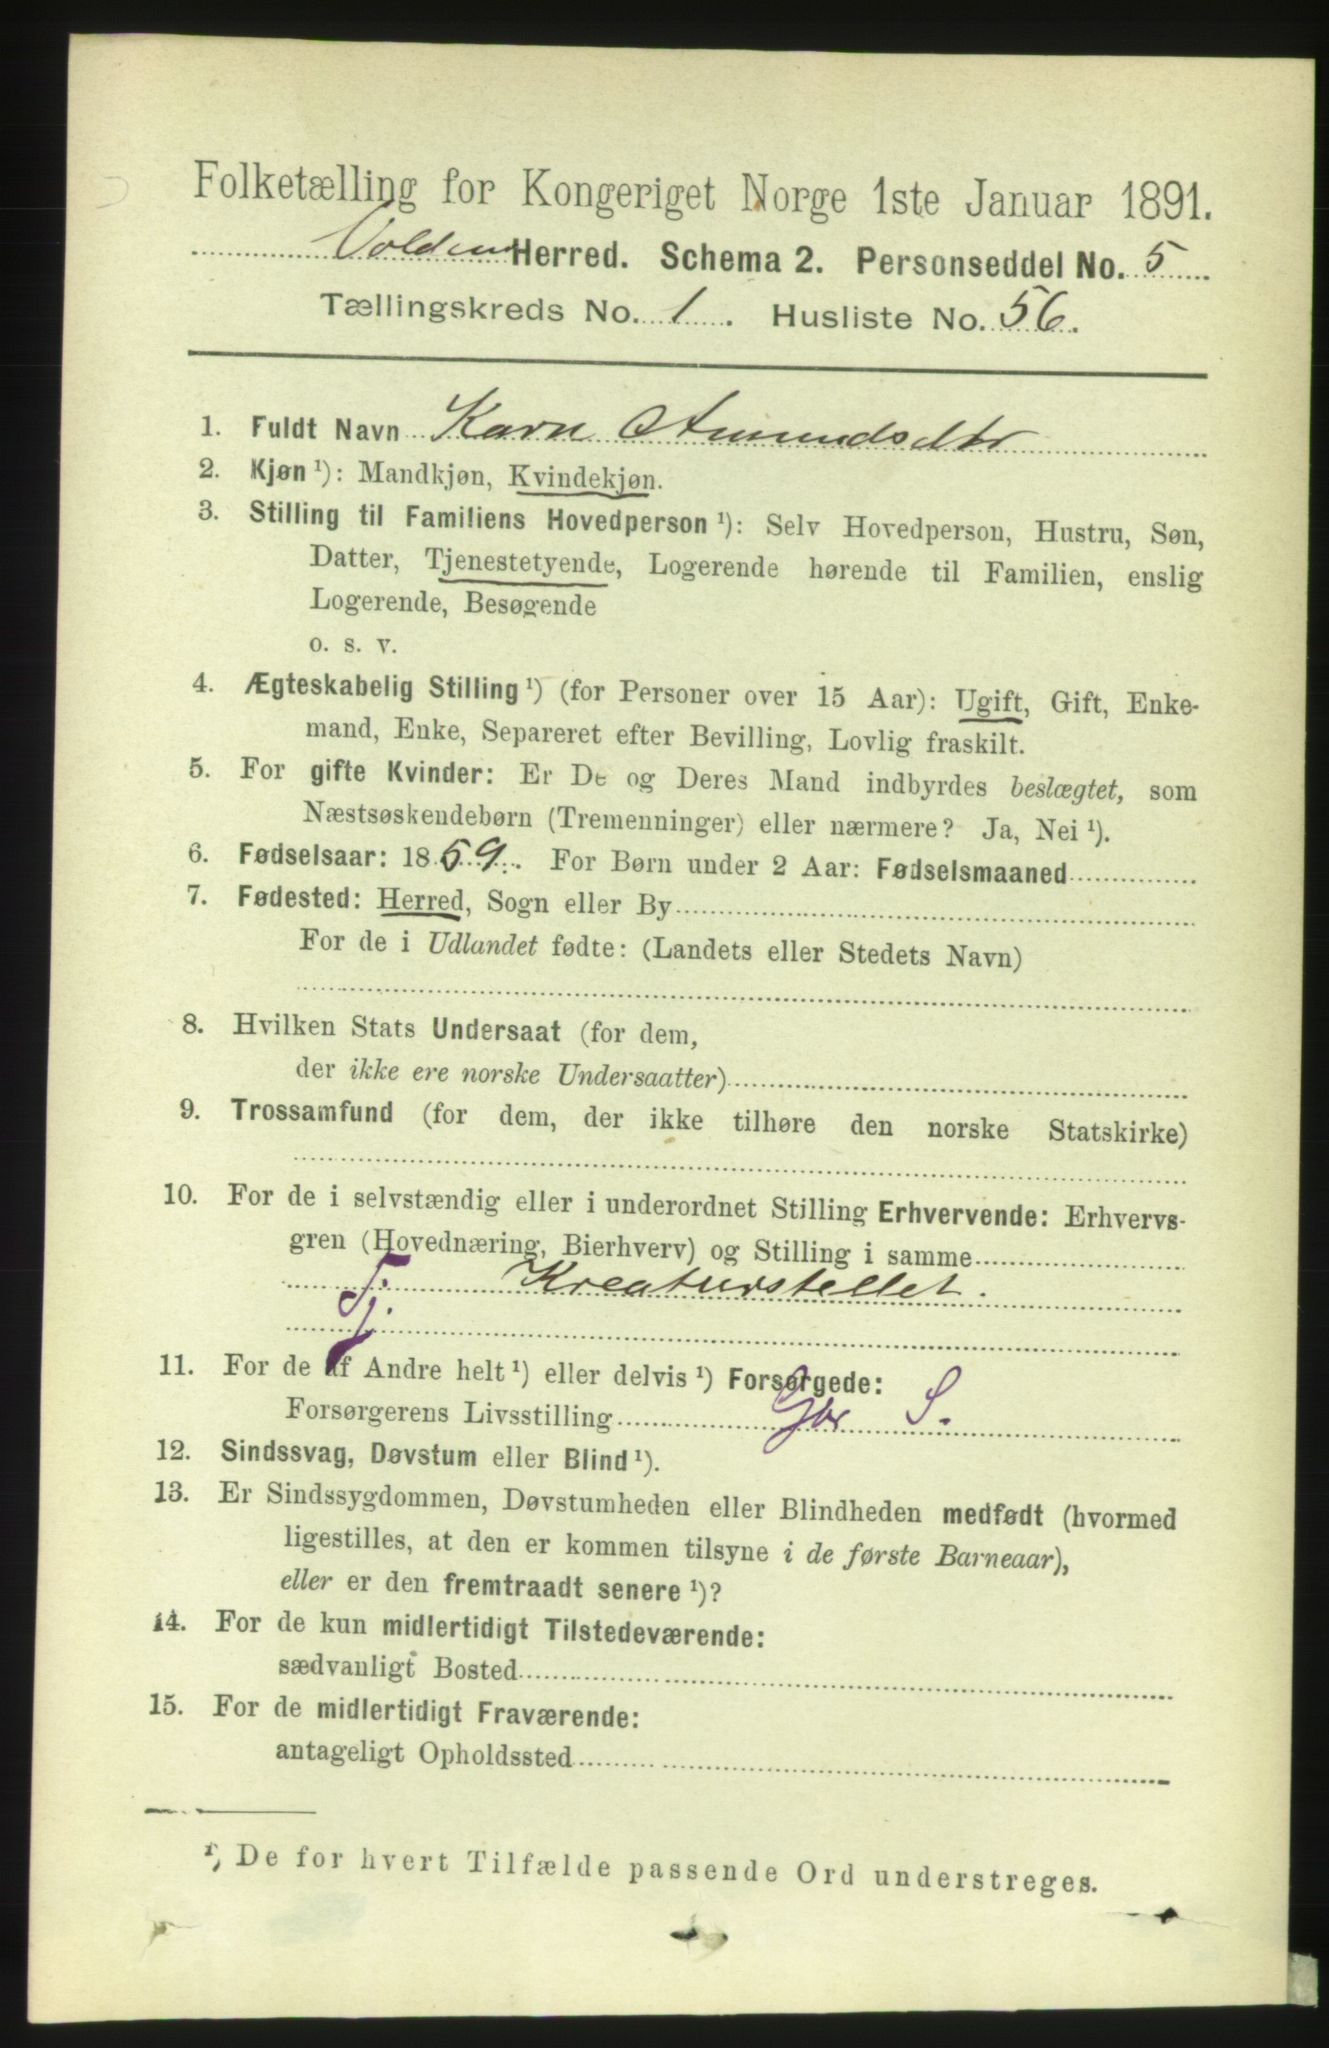 Folketælling for Kongeriget Norge 1ste Januar 1891.
Volden Herred. Schema 2. Personseddel No. 5
Tællingskreds No. 1. Husliste No. 56.
1. Fuldt Navn Karn Amundsdtr
2. Kjøn ¹): Mandkjøn, Kvindekjøn.
3. Stilling til Familiens Hovedperson ¹): Selv Hovedperson, Hustru, Søn,
Datter, Tjenestetyende, Logerende hørende til Familien, enslig
Logerende, Besøgende
o. s. v.
4. Ægteskabelig Stilling ¹) (for Personer over 15 Aar): Ugift, Gift, Enke-
mand, Enke, Separeret efter Bevilling, Lovlig fraskilt.
5. For gifte Kvinder: Er De og Deres Mand indbyrdes beslægtet, som
Næstsøskendebørn (Tremenninger) eller nærmere? Ja, Nei ¹).
6. Fødselsaar: 1859. For Børn under 2 Aar: Fødselsmaaned
7. Fødested: Herred, Sogn eller By
For de i Udlandet fødte: (Landets eller Stedets Navn)
8. Hvilken Stats Undersaat (for dem,
der ikke ere norske Undersaatter)
9. Trossamfund (for dem, der ikke tilhøre den norske Statskirke)
10. For de i selvstændig eller i underordnet Stilling Erhvervende: Erhvervs-
gren (Hovednæring, Bierhverv) og Stilling i samme
Tj. Kreaturstellet.
11. For de af Andre helt ¹) eller delvis ¹) Forsørgede:
Forsørgerens Livsstilling Gbr S.
12. Sindssvag, Døvstum eller Blind ¹).
13. Er Sindssygdommen, Døvstumheden eller Blindheden medfødt (hvormed
ligestilles, at den er kommen tilsyne i de første Barneaar),
eller er den fremtraadt senere ¹)?
14. For de kun midlertidigt Tilstedeværende:
sædvanligt Bosted
15. For de midlertidigt Fraværende:
antageligt Opholdssted
¹) De for hvert Tilfælde passende Ord understreges.